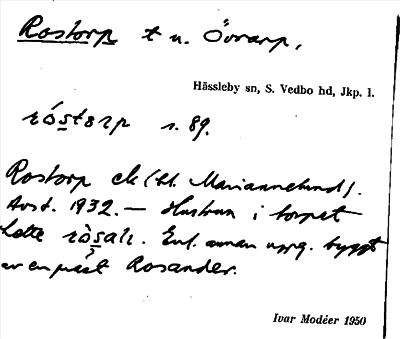 Rostorp t u. Övrarp,
Hässleby sn, S. Vedbo hd, Jkp. l.
róstɘrp s. 89.
Rostorp ck (bl. Mariannelund).
Avst. 1932. — Hustrun i torpet
hette ròsaɩ. Enl. annan uppg. byggt
av en präst Rosander.
Ivar Modéer 1950